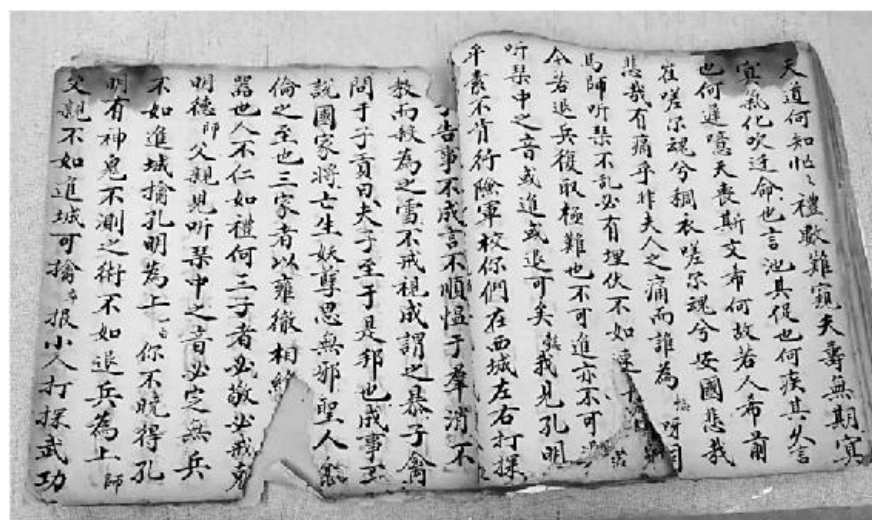 天道何知忙々禮歇難窺夫壽無期寔
寔氣化吹迁命也言池其促也何疾其久言
也何遲噫天喪斯文希何故若人希前
崔嗟尔魂兮稠衣嗟尔魂兮安國悲哉
悲哉有痛乎非夫人之痛而誰為 呀司
馬師听琴不乱必有埋伏不如速
令若退兵復取極難也不可進亦不可
听琴中之音或進或退可矣 我見孔明
平素不肯行險軍校你們在西城左右打探
告事不成言不順慍于羣消不
教而殺為之雪不戒視成謂之暴子禽
問于子貢曰夫子至于是邦也成事至
說國家將亡生妖孽思無邪聖人
倫之至也三家者以雍徹相
器也人不仁如禮何三子者必敬必戒
明德師父親見听琴中之音必定無兵
不如進城擒孔明為上 你不曉得孔
明有神鬼不測之術不如退兵為上師
父親不如進城可擒 报小人打探武功